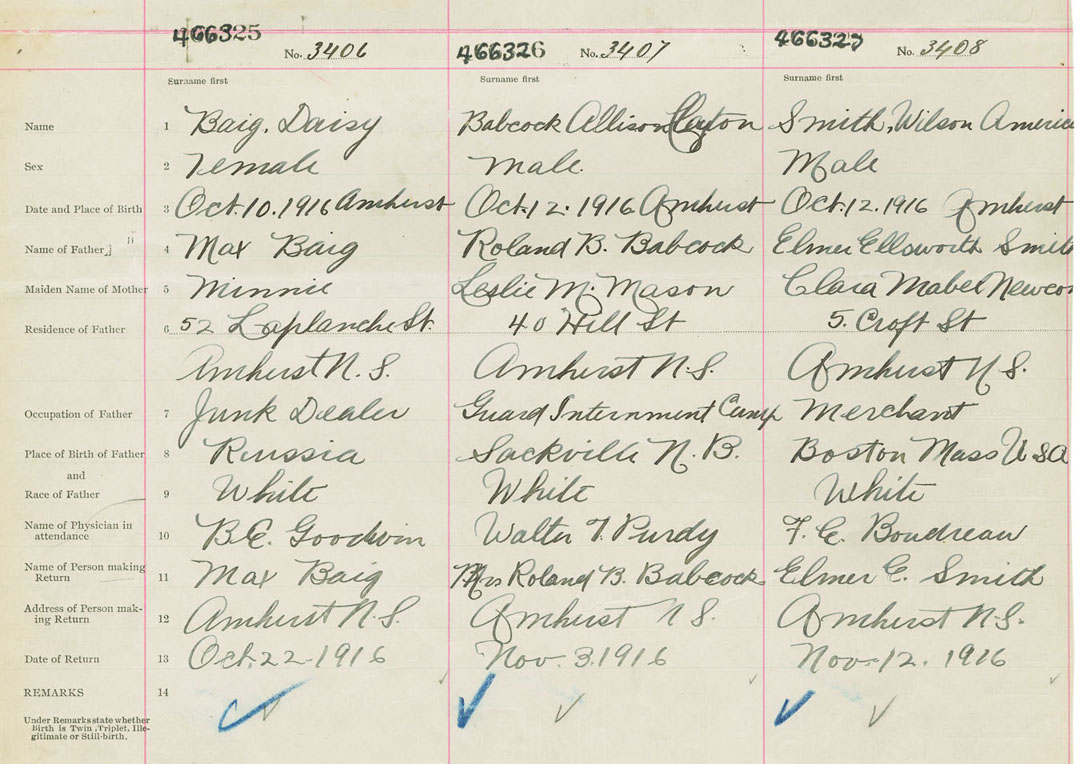 466325 No. 3406 466326 No. 3407 466327 No. 3408
Surname first Surname first Surname first
Name 1 Baig, Daisy Babcock Allison Clayton Smith, Wilson Americ
Sex 2 Female Male. Male
Date and Place of Birth 3 Oct. 10. 1916 Amherst Oct. 12. 1916 Amherst Oct. 12. 1916 Amherst
Name of Father 4 Max Baig Roland B. Babcock Elmer Ellsworth Smith
Maiden Name of Mother 5 Minnie Leslie M. Mason Clara Mabel Newco
Residence of Father 6 52 Laplanche St. 40 Hill St 5. Croft St
Amherst N.S. Amherst N.S. Amherst N.S.
Occupation of Father 7 Junk Dealer Guard Internment Camp Merchant
Place of Birth of Father 8 Russia Sackville N.B. Boston Mass U S A
and
Race of Father 9 White White White
Name of Physician in
attendance 10 B.E. Goodwin Walter T. Purdy F. C. Boudreau
Name of Person making
Return 11 Max Baig Mrs Roland B. Babcock Elmer E. Smith
Address of Person mak-
ing Return 12 Amherst N.S. Amherst N.S. Amherst N.S.
Date of Return 13 Oct. 22 1916 Nov. 3. 1916 Nov. 12. 1916
REMARKS 14
Under Remarks state whether
Birth is Twin, Triplet, Ille-
gitimate or Still-birth.